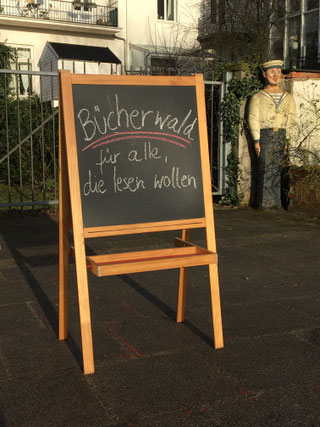 Bücherwald
für alle,
die lesen wollen